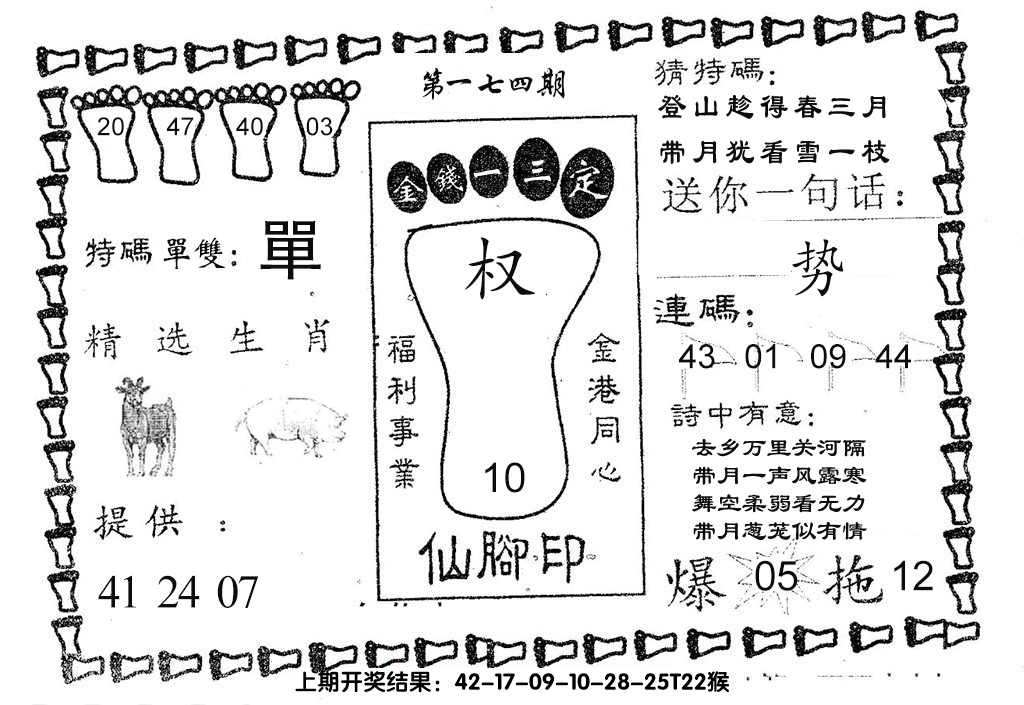 第一七四期
20 47 40 03
特碼單雙：單
精选生肖
提供：
41 24 07
金錢一三定
权
福利事業
金港同心
10
仙腳印
猜特碼：
登山趁得春三月
带月犹看雪一枝
送你一句话：
势
連碼：
43 01 09 44
詩中有意：
去乡万里关河隔
带月一声风露寒
舞空柔弱看无力
带月葱茏似有情
爆 05 拖 12
上期开奖结果：42-17-09-10-28-25T22猴